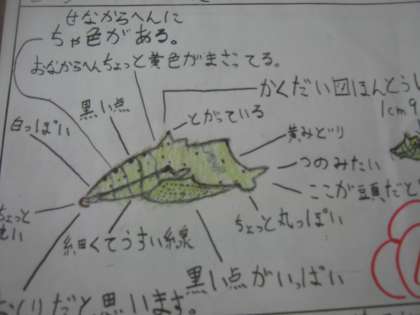 せなからへんに
ちゃ色がある。
おなからへんちょっと黄色がまざってる。
かくだい図ほんとうし
1cm9
黒い点
とがっている
白っぽい
黄みどり
つのみたい
ここが頭だと
ちょっと
丸っぽい
ちょっと
細くてうすい線
黒い点がいっぱい
くりだと思います。